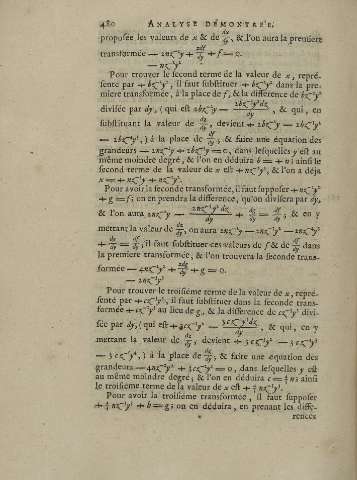 480 ANALYSE DÉMONTRÉE.
proposée les valeurs de x & de dx/dy, & l'on aura la premiere
transformée — 2nz⁻¹y + zdf/dy + f = 0.
— nz⁻¹y
Pour trouver le second terme de la valeur de x, repré-
senté par + bz⁻¹y², il faut substituer + bz⁻¹y² dans la pre-
miere transformée, à la place de f, & la difference de bz⁻¹y²
divisée par dy, (qui est 2bz⁻¹y — 2bz⁻¹y²dz/dy, & qui, en
substituant la valeur de dz/dy, devient + 2bz⁻¹y — 2bz⁻¹y²
— 2bz⁻¹y²,) à la place de df/dy; & faire une équation des
grandeurs — 2nz⁻¹y + 2bz⁻¹y = 0, dans lesquelles y est au
même moindre degré, & l'on en déduira b = + n; ainsi le
second terme de la valeur de x est + nz⁻¹y², & l'on a déja
x = + nz⁻¹y + nz⁻¹y².
Pour avoir la seconde transformée, il faut supposer + nz⁻¹y²
+ g = f; on en prendra la difference, qu'on divisera par dy,
& l'on aura 2nz⁻¹y — 2nz⁻¹y²dz/dy + dg/dy = df/dy; & en y
mettant la valeur de dz/dy, on aura 2nz⁻¹y — 2nz⁻¹y² — 2nz⁻¹y²
+ dg/dy = df/dy; il faut substituer ces valeurs de f & de df/dy dans
la premiere transformée, & l'on trouvera la seconde trans-
formée — 4nz⁻¹y² + zdg/dy + g = 0.
— 2nz⁻¹y²
Pour trouver le troisiéme terme de la valeur de x, repré-
senté par + cz⁻¹y³, il faut substituer dans la seconde trans-
formée + cz⁻¹y³ au lieu de g, & la difference de cz⁻¹y³ divi-
sée par dy, (qui est + 3cz⁻¹y² — 3cz⁻¹y³dz/dy, & qui, en y
mettant la valeur de dz/dy, devient + 3cz⁻¹y² — 3cz⁻¹y³
— 3cz⁻¹y³,) à la place de dg/dy, & faire une équation des
grandeurs — 4nz⁻¹y² + 3cz⁻¹y² = 0, dans lesquelles y est
au même moindre degré; & l'on en déduira c = 4/3 n; ainsi
le troisiéme terme de la valeur de x est + 4/3 nz⁻¹y³.
Pour avoir la troisiéme transformée, il faut supposer
+ 4/3 nz⁻¹y³ + h = g; on en déduira, en prenant les diffe-
rences